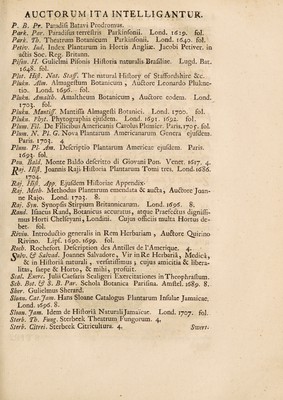 AUCTORUM ITA INTELLIGANTUR.
P. B. Pr. Paradisi Batavi Prodromus.
Park. Par. Paradisus terrestris Parkinsonii. Lond. 1629. fol.
Park. Th. Theatrum Botanicum Parkinsonii. Lond. 1640. fol.
Petiv. Ind. Index Plantarum in Hortis Angliæ. Jacobi Petiver. in
actis Soc. Reg. Britann.
Pison. H. Gulielmi Pisonis Historia naturalis Brasiliæ. Lugd. Bat.
1648. fol.
Plot. Hist. Nat. Staff. The natural History of Staffordshire &c.
Plukn. Alm. Almagestum Botanicum, Auctore Leonardo Plukne-
tio. Lond. 1696. fol.
Plukn. Amalth. Amaltheum Botanicum, Auctore eodem. Lond.
1703. fol.
Pluk. Mantiss. Mantissa Almagesti Botanici. Lond. 1700. fol.
Pluk. Phyt. Phytographia ejusdem. Lond. 1691. 1692. fol.
Plum. Fil. De Filicibus Americanis Carolus Plumier. Paris. 1705. fol.
Plum. N. Pl. G. Nova Plantarum Americanarum Genera ejusdem.
Paris. 1703. 4
Plum. Pl. Am. Descriptio Plantarum Americæ ejusdem. Paris.
1693. fol.
Pon. Bald. Monte Baldo descritto di Giovani Pon. Venet. 1617. 4.
Raj. Hist. Joannis Raji Historia Plantarum Tomi tres. Lond. 1686.
1704.
Raj. Hist. App. Ejusdem Historiæ Appendix.
Raj. Meth. Methodus Plantarum emendata & aucta, Auctore Joan-
ne Rajo. Lond. 1703. 8.
Raj. Syn. Synopsis Stirpium Britannicarum. Lond. 1696. 8.
Rand. Isaacus Rand, Botanicus accuratus, atque Præfectus dignissi-
mus Horti Chelseyani, Londini. Cujus officiis multa Hortus de-
bet. fol.
Rivin. Introductio generalis in Rem Herbariam, Auctore Quirino
Rivino. Lips. 1690. 1699. fol.
Roch. Rochefort. Description des Antilles de l'Amerique. 4.
Salv. & Salvad. Joannes Salvadore, Vir in Re Herbariâ, Medicâ,
& in Historiâ naturali, versatissimus; cujus amicitia & libera-
litas, sæpe & Horto, & mihi, profuit.
Scal. Exerc. Julii Cæsaris Scaligeri Exercitationes in Theophrastum.
Sch. Bot. & S. B. Par. Schola Botanica Parisina. Amstel. 1689. 8.
Sher. Gulielmus Sherard.
Sloan. Cat. Jam. Hans Sloane Catalogus Plantarum Insulæ Jamaicæ.
Lond. 1696. 8.
Sloan. Jam. Idem de Historiâ Naturali Jamaicæ. Lond. 1707. fol.
Sterb. Th. Fung. Sterbeek Theatrum Fungorum. 4.
Sterb. Citrei. Sterbeek Citricultura. 4.
Swert.